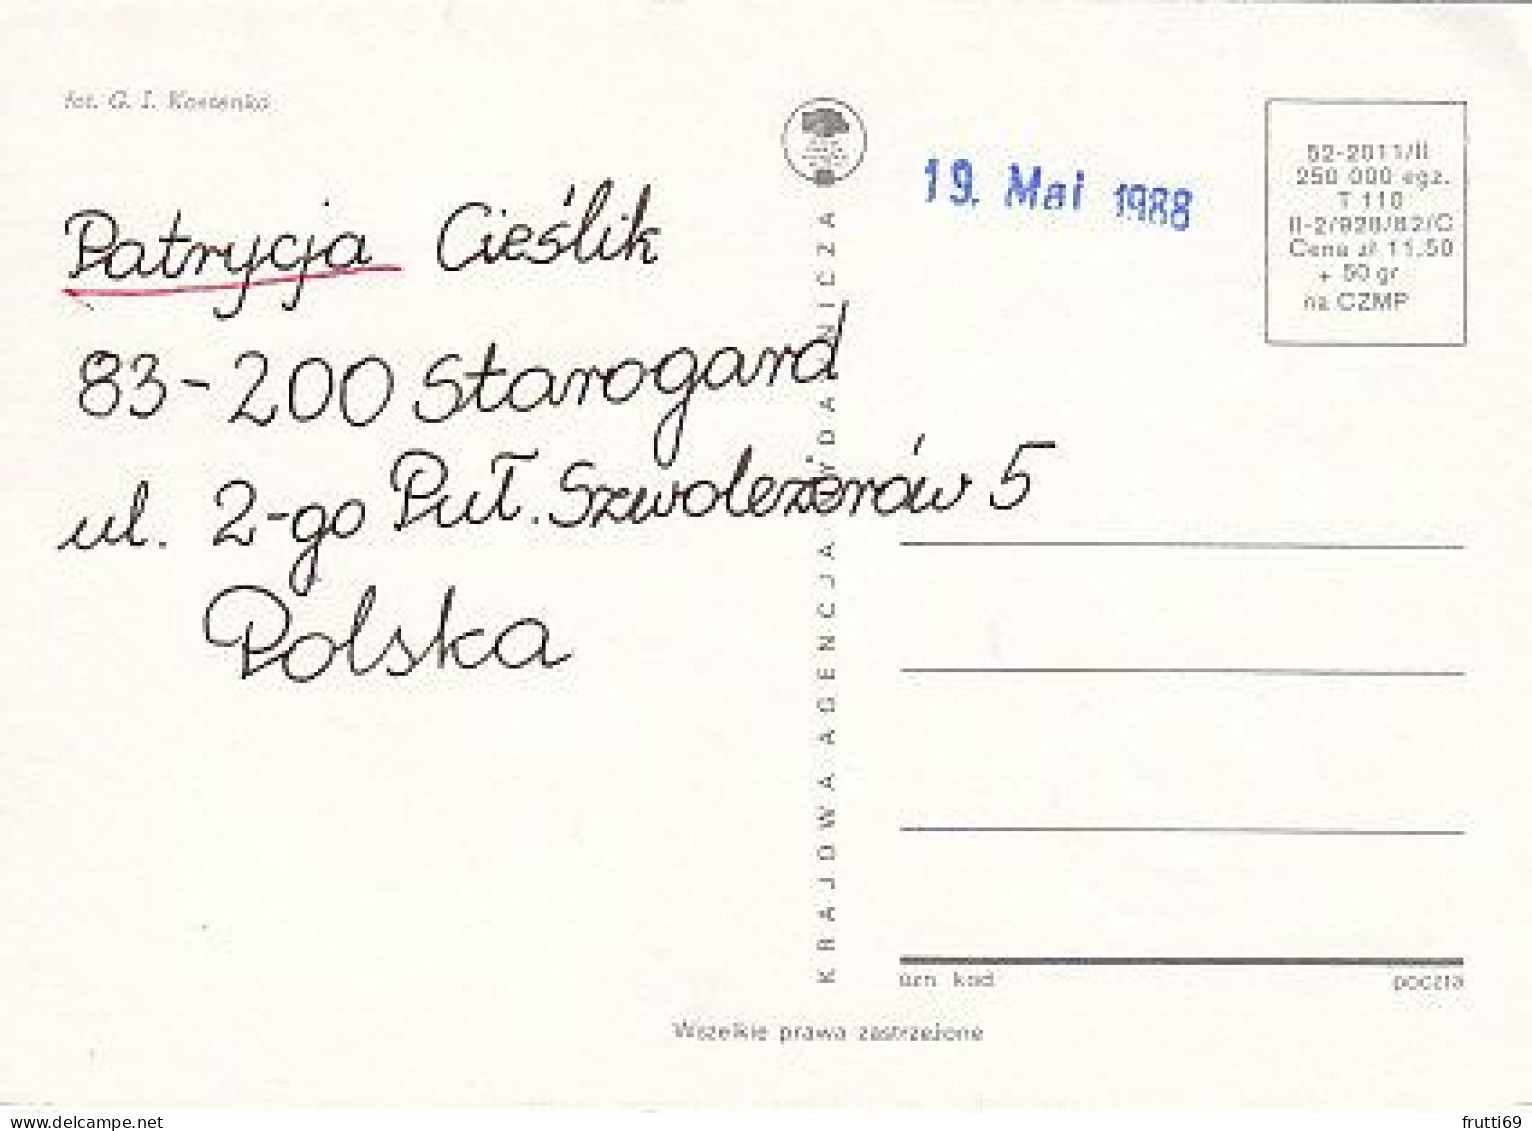 fot. G. I. Kostenko
Patrycja Cieślik
83-200 Starogard
ul. 2-go Puł. Szwoleżerów 5
Polska
KRAJOWA AGENCJA WYDAWNICZA
19. Mai 1988
52-2011/II
250 000 egz.
T 110
II-2/928/82/C
Cena zł 11,50
+ 50 gr
na CZMP
urn kod
poczta
Wszelkie prawa zastrzeżone
www.delcampe.net
frutti69